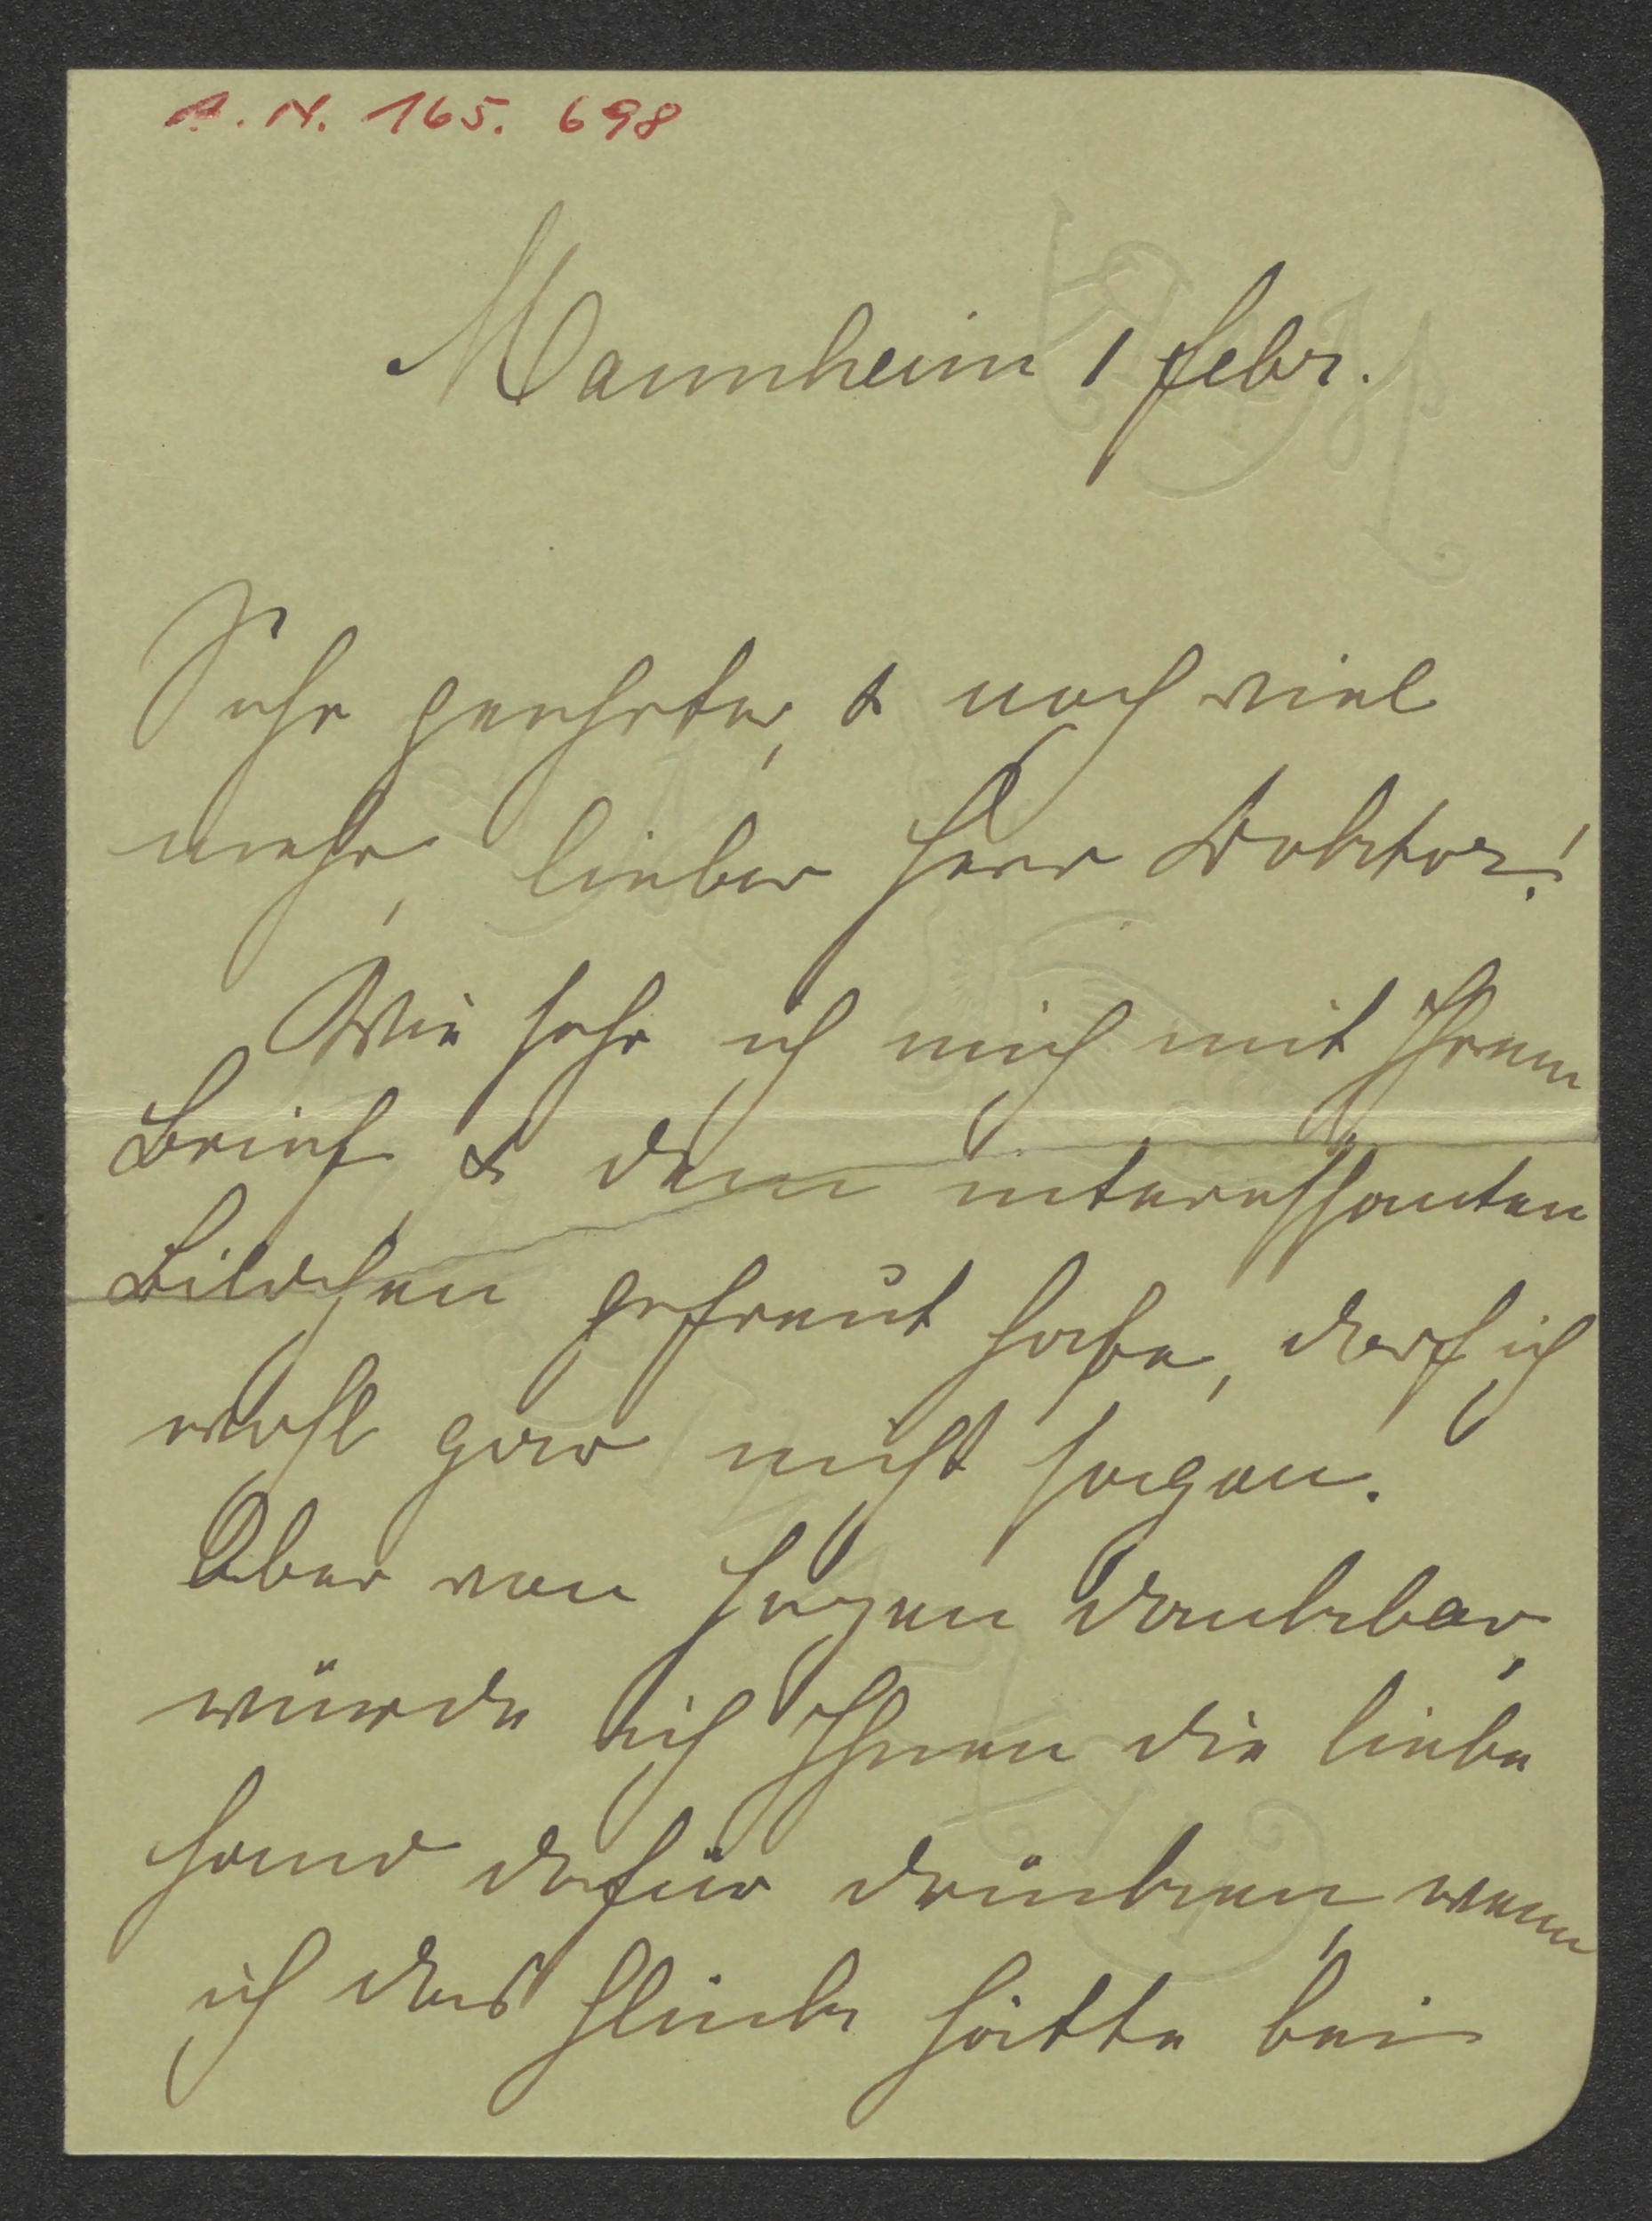 A. N. 165. 698
Mannheim 1 Febr.
Sehr geehrter, & noch viel
mehr, lieber Herr Doktor!
Wie sehr ich mich mit Ihrem
Brief & dem interessanten
Bildchen gefreut habe, darf ich
wohl gar nicht sagen.
Aber von Herzen dankbar,
würde ich Ihnen die liebe
Hand dafür drücken, wenn
ich das Glück hätte bei